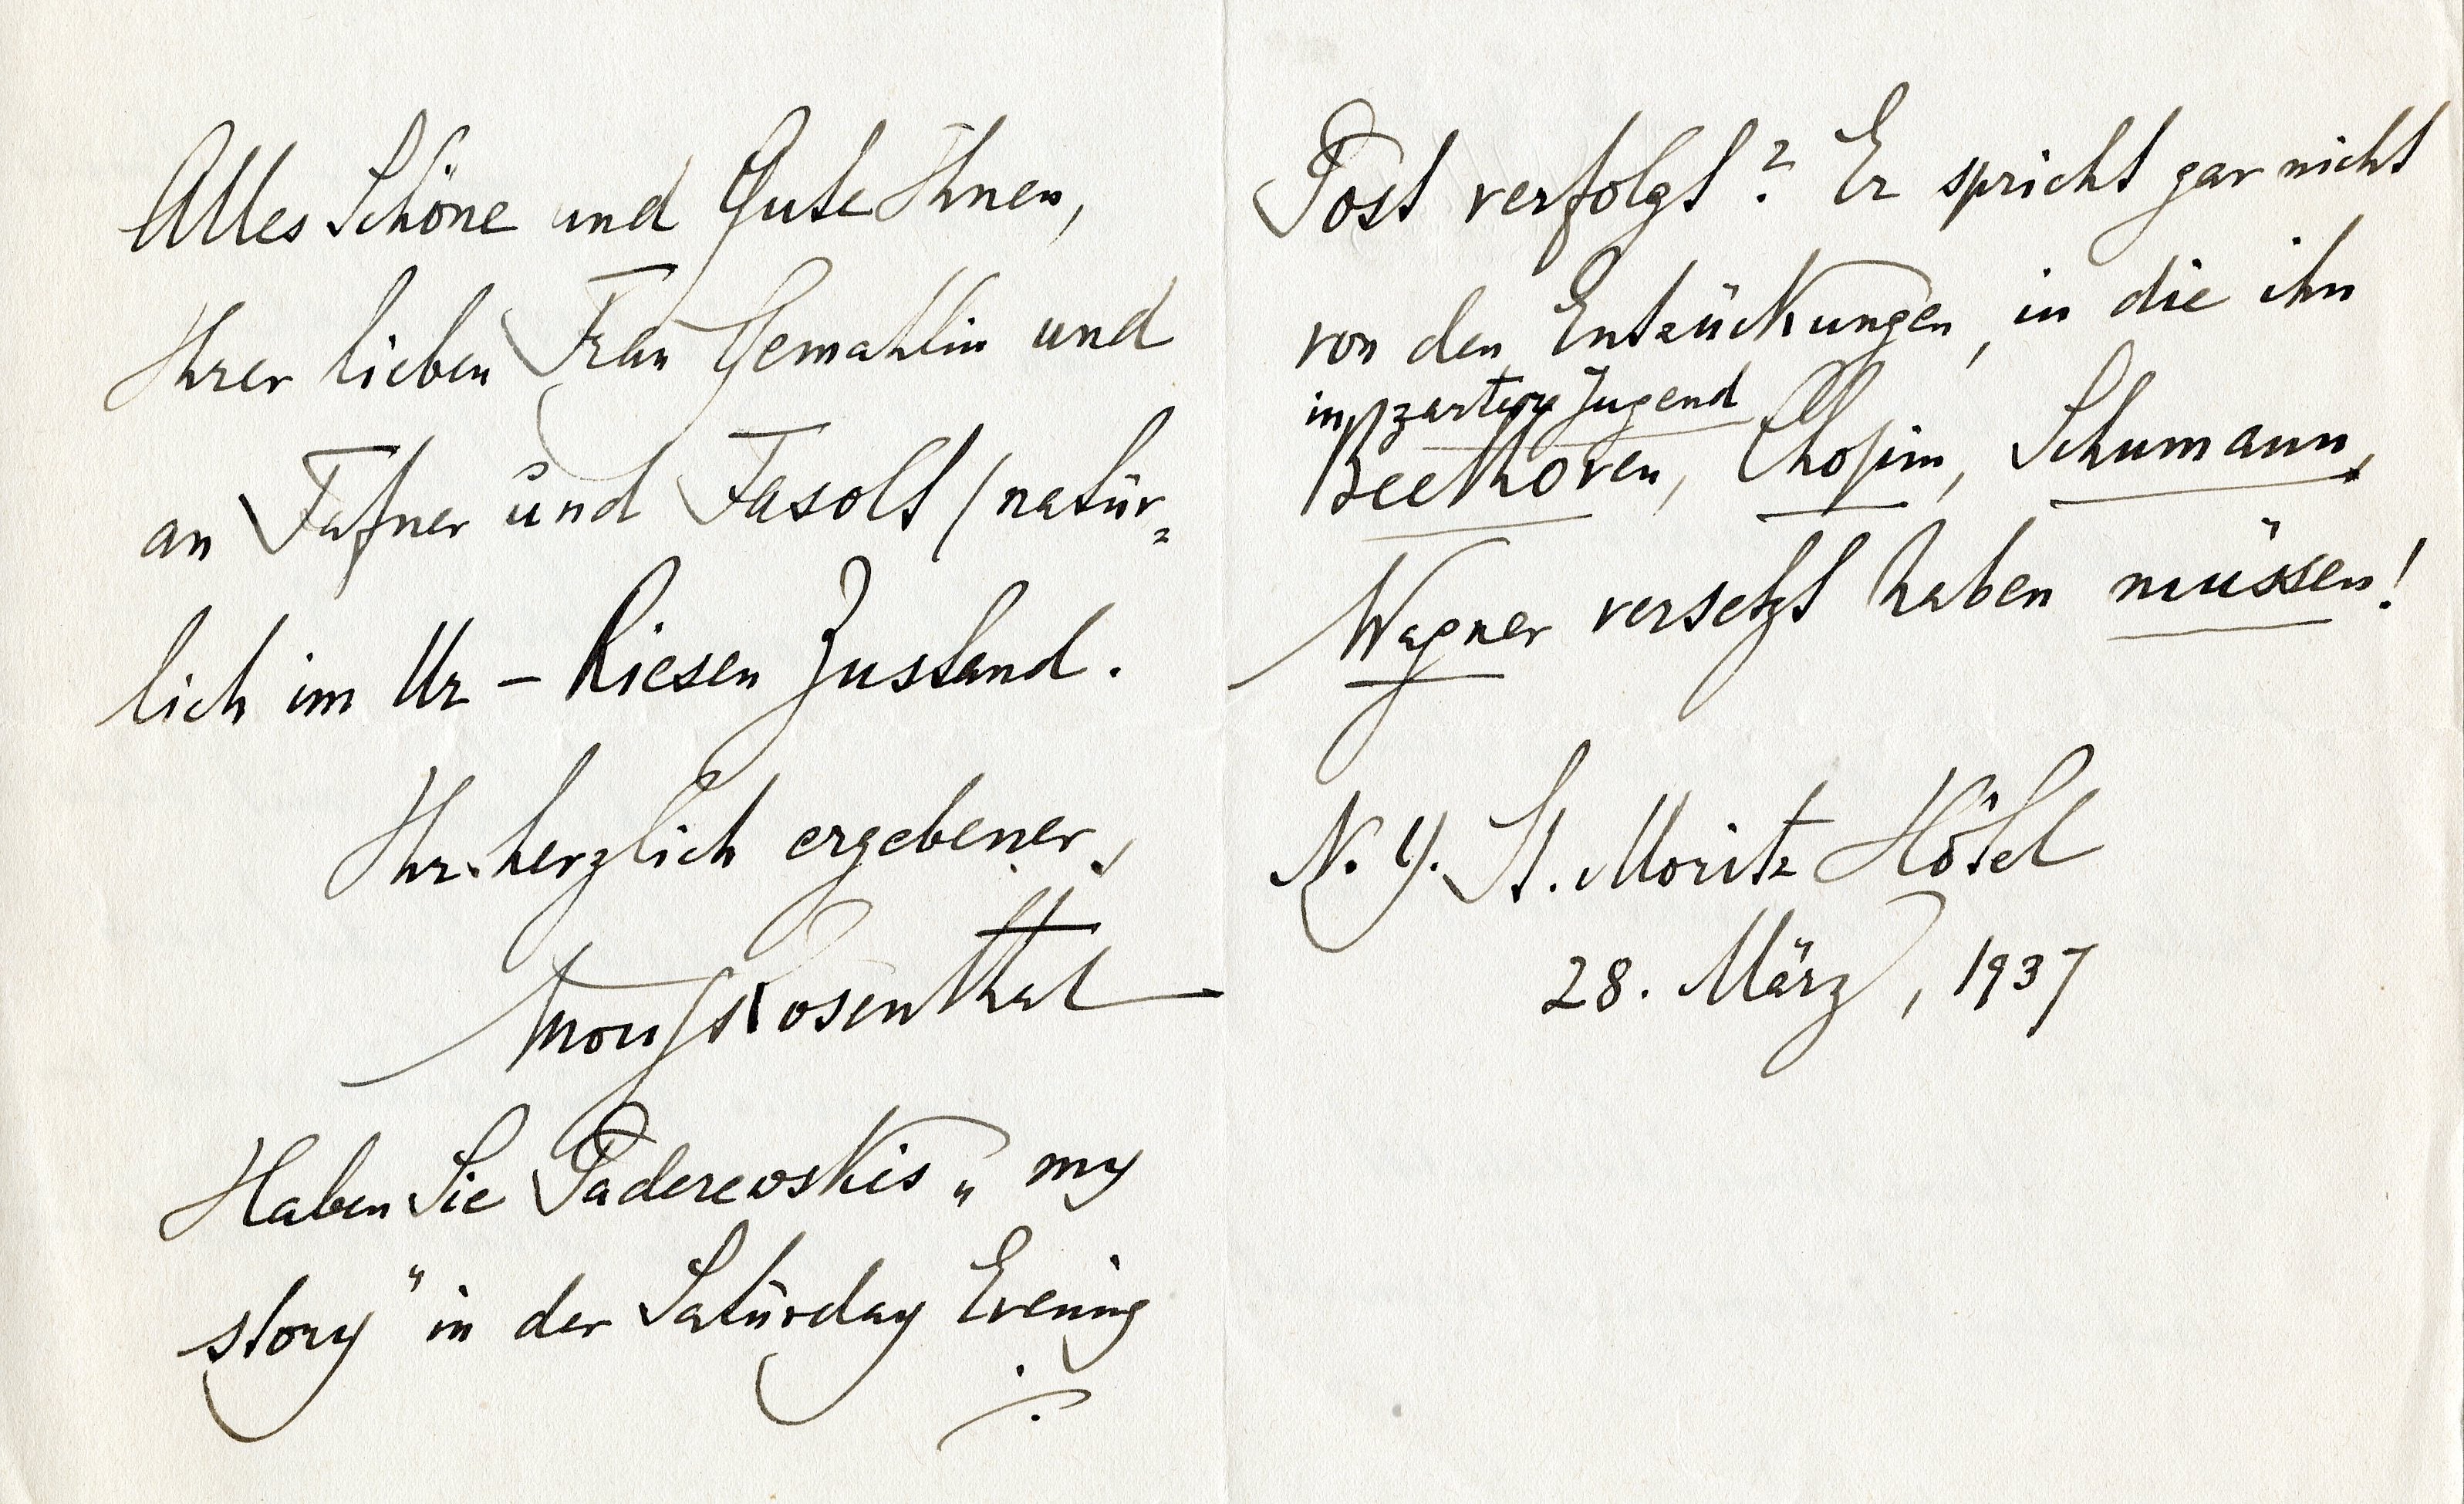 Alles Schöne und Gute Ihnen,
Ihrer lieben Frau Gemahlin und
an Fafner und Fasolt / natür=
lich im Ur – Riesen Zustand.
Ihr herzlich ergebener,
Moriz Rosenthal
Haben Sie Paderewskis „my
story“ in der Saturday Evening
Post verfolgt? Er spricht gar nicht
von den Entzückungen, in die ihn
in zarter Jugend
Beethoven, Chopin, Schumann,
Wagner versetzt haben müssen!
N. Y. St. Moritz Hôtel
28. März, 1937